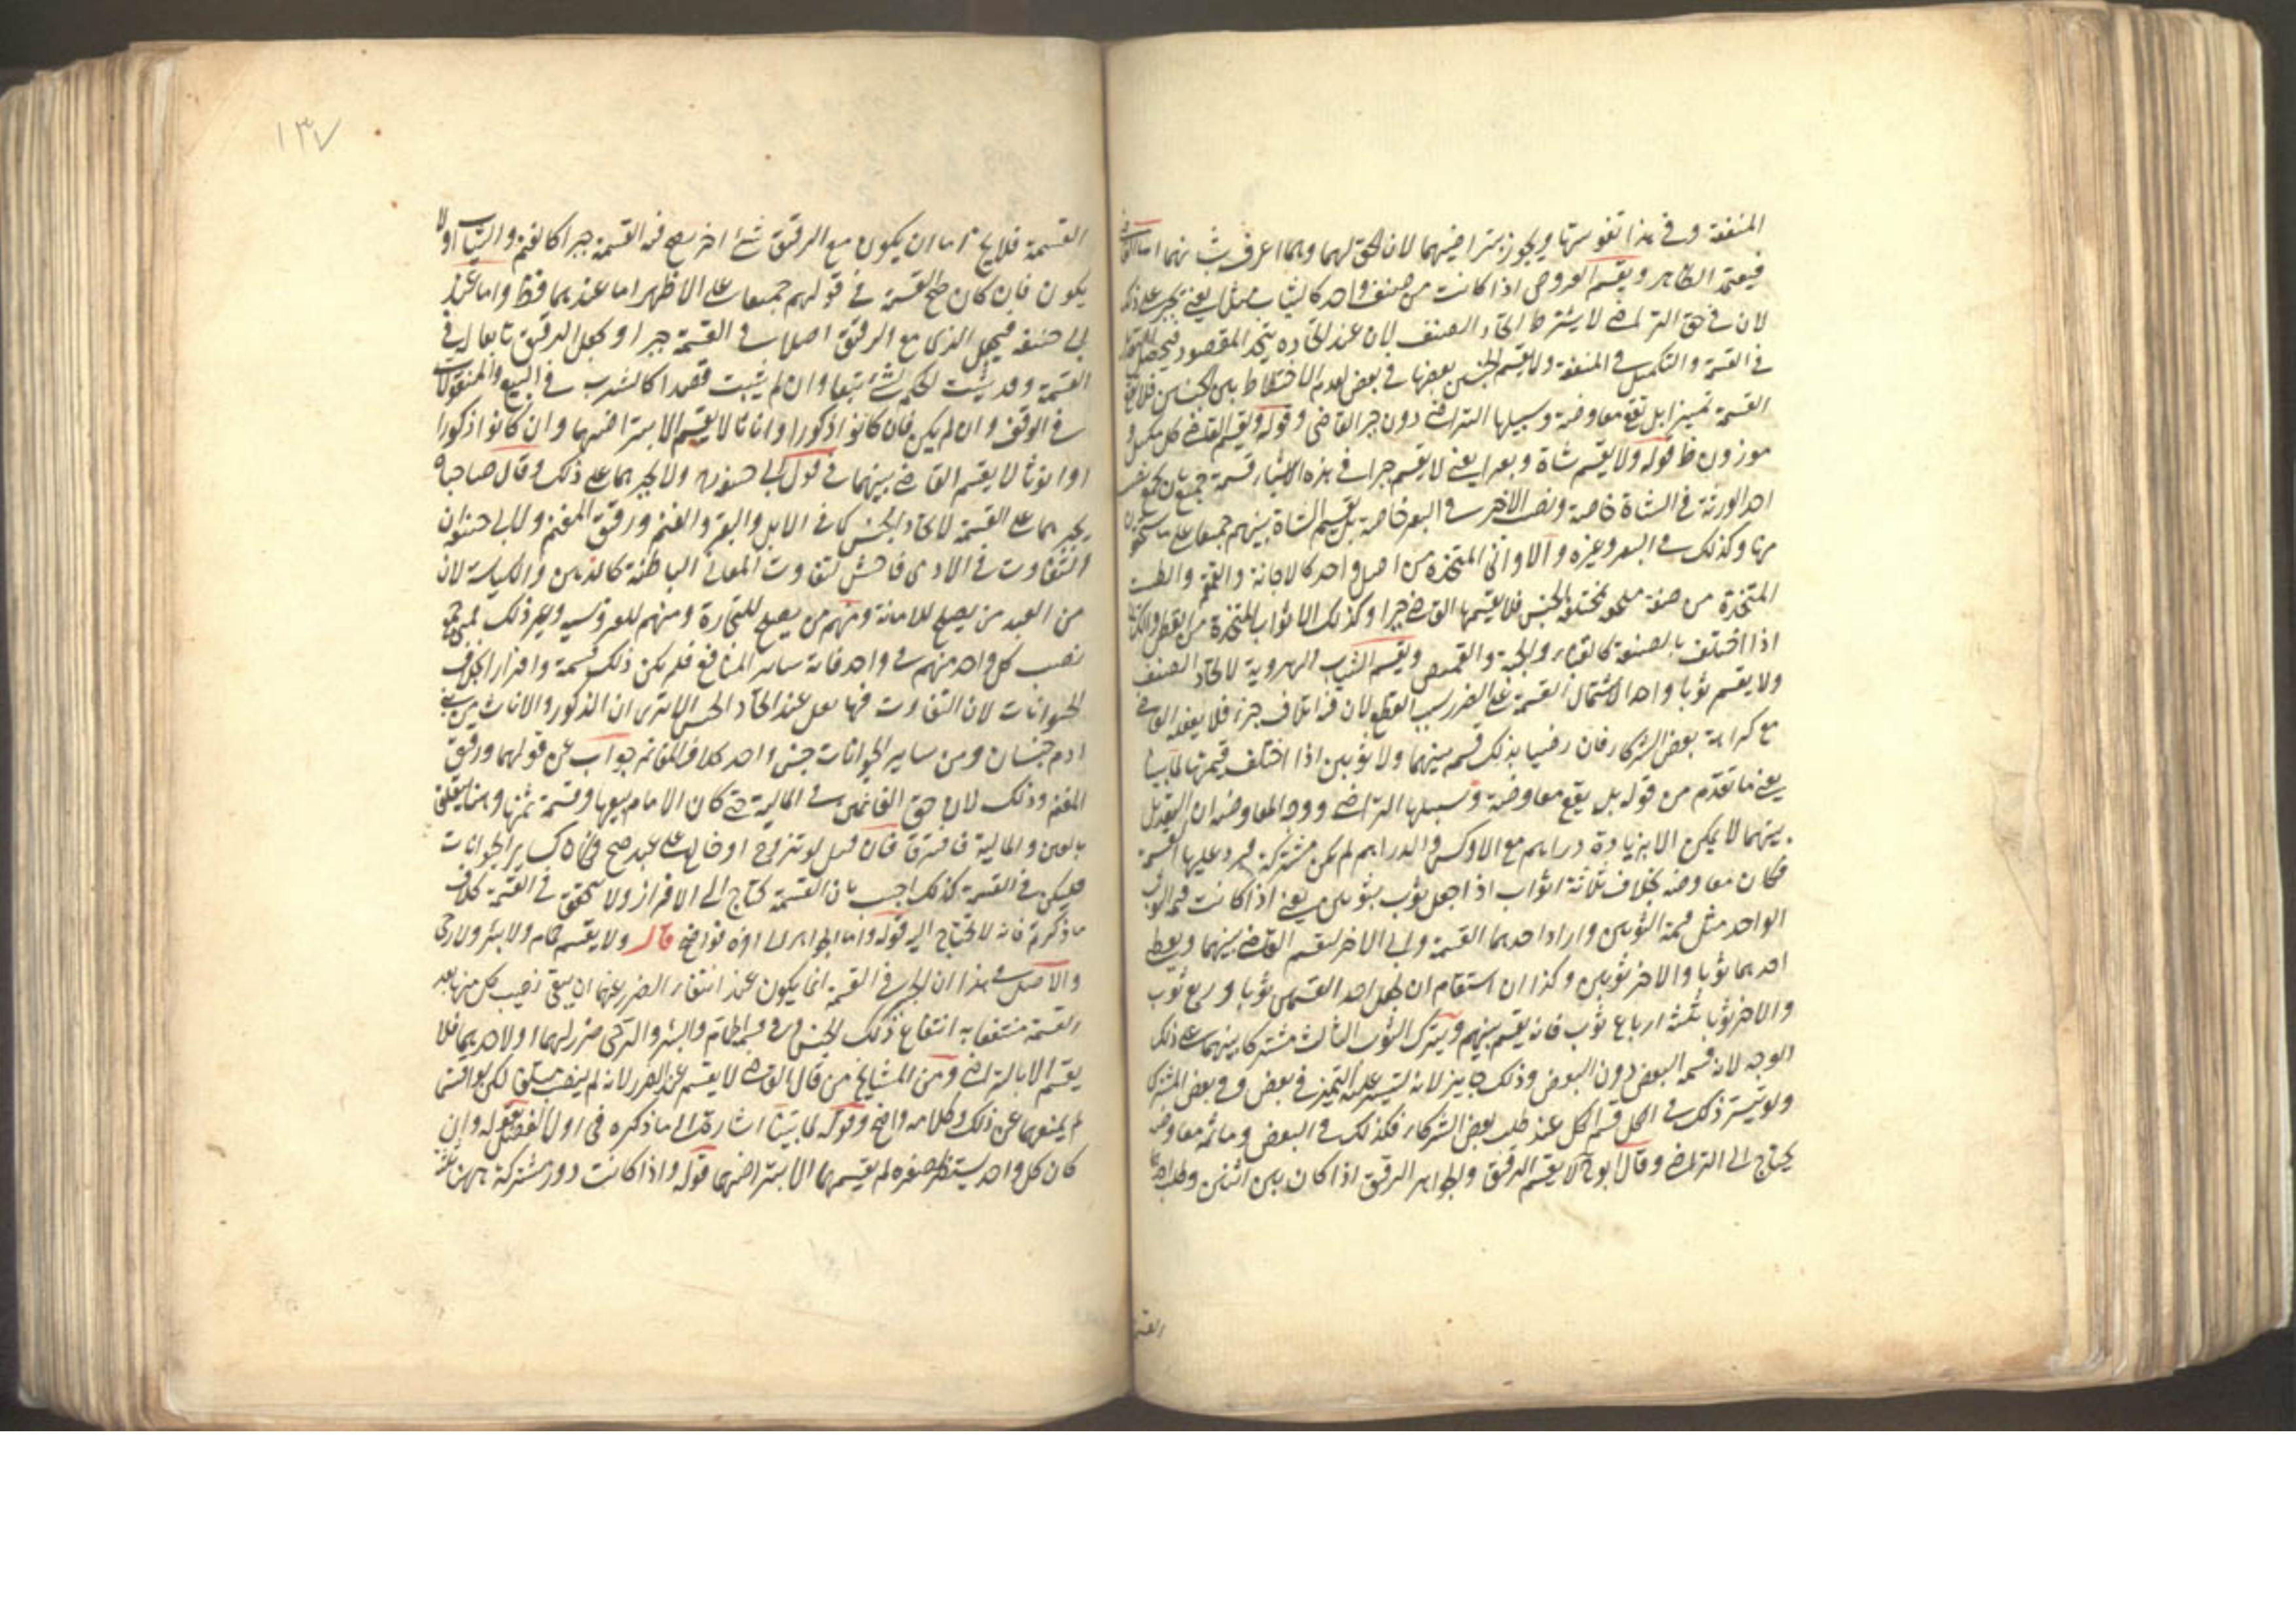 المنفعة وفي هذا تفويتها ويجوز بتراضيهما لان الحق لهما وهما اعرف بشانهما اما القاضي
فيعتمد الظاهر ويقسم العروض اذا كانت من صنف واحد كالثياب مثلا يعني يجبر على ذلك
لان في حق التراضي لا يشترط اتحاد الصنف لان عند اتحاده يتحد المقصود فيحصل التعديل
في القسمة والتكميل في المنفعة ولا يقسم الجنسين بعضها في بعض لعدم الاختلاط بين الجنسين فلا تقع
القسمة تمييزا بل تقع معاوضة وسبيلها التراضي دون جبر القاضي وقوله ويقسم القاضي كل مكيل و
موزون ظ قوله ولا يقسم شاة وبعيرا يعني لا يقسم جبرا في هذه الاشياء قسمة جمع بان يجمع نصيب
احد الورثة في الشاة خاصة ونصيب الاخر في البعير خاصة بل يقسم الشاة بينهم جميعا على ما يستحقون
منها وكذلك في البعير وغيره والاواني المتخذة من اصل واحد كالاجانة والقمقمة والطست
المتخذة من صفر ملحق بمختلفة الجنس فلا يقسمها القاضي جبرا وكذلك الاثواب المتخذة من القطن والكتان
اذا اختلف بالصنعة كالقباء والجبة والقميص ويقسم الثياب الهروية لاتحاد الصنف
ولا يقسم ثوبا واحدا لاشتمال القسمة على الضرر بسبب القطع لان فيه اتلاف جزء فلا يفعله القاضي
مع كراهة بعض الشركاء فان رضيا بذلك قسم بينهما ولا ثوبين اذا اختلف قيمتهما لما بينا
يعني ما تقدم من قوله بل يقع معاوضة وسبيلها التراضي ووجه المعاوضة ان التعديل
بينهما لا يمكن الا بزيادة دراهم مع الاوكس والدراهم لم تكن مشتركة فيرد عليها القسمة
فكان معاوضة بخلاف ثلاثة اثواب اذا جعل ثوب بثوبين يعني اذا كانت قيمة الثوب
الواحد مثل قيمة الثوبين واراد احدهما القسمة وابى الاخر يقسم القاضي بينهما ويعطي
احدهما ثوبا والاخر ثوبين وكذا ان استقام ان يجعل احد القسمين ثوبا وربع ثوب
والاخر ثوبا بثلثة ارباع ثوب فانه يقسم بينهم ويترك الثوب الثالث مشتركا بينهما على ذلك
الوجه لانه قسمة البعض دون البعض وذلك جايز لانه تيسر عليه التمييز في بعض وفي بعض المشترك
ولو تيسر ذلك في الكل قسم الكل عند طلب بعض الشركاء فكذلك في البعض وما ثمه معاوضة
يحتاج الى التراضي وقال ابو ح لا يقسم الرقيق والجواهر الرقيق اذا كان بين اثنين وطلب احدهما
القسمة
١٣٧
القسمة فلا يخ اما ان يكون مع الرقيق شئ اخر يصح فيه القسمة جبرا كالغنم والثياب اولا
يكون فان كان صح القسمة في قولهم جميعا على الاظهر اما عندهما فظ واما عند
ابي حنيفة فيجعل الذي مع الرقيق اصلا في القسمة جبرا ويجعل الرقيق تابعا له في
القسمة وقد يثبت الحكم لشئ تبعا وان لم يثبت قصدا كالشرب في البيع والمنقولات
في الوقف وان لم يكن فان كانوا ذكورا واناثا لا يقسم الا بتراضيهما وان كانوا ذكورا
او اناثا لا يقسم القاضي بينهما في قول ابي حنيفة ولا يجبرهما على ذلك وقال صاحباه
يجبرهما على القسمة لاتحاد الجنس كما في الابل والبقر والغنم ورقيق المغنم ولابي حنيفة ان
التفاوت في الادمي فاحش لتفاوت المعاني الباطنة كالذهن والكياسة لان
من العبيد من يصلح للامانة ومنهم من يصلح للتجارة ومنهم للفروسية وغير ذلك فمتى جمع
نصيب كل واحد منهم في واحد فاته ساير المنافع فلم يكن ذلك قسمة وافراز بخلاف
الحيوانات لان التفاوت فيها يقل عند اتحاد الجنس الا يرى ان الذكور والاناث من بني
ادم جنسان ومن ساير الحيوانات جنس واحد بخلاف المغانم جواب عن قولهما ورقيق
المغنم وذلك لان حق الغانمين في المالية حتى كان الامام بيعها وقسمة ثمنها وهنا يتعلق
بالعين والمالية فافترقا فان قيل لو تزوج او خالع على عبد صح فكان كساير الحيوانات
فليكن في القسمة كذلك اجيب بان القسمة تحتاج الى الافراز ولا يتحقق في القسمة بخلاف
ما ذكرتم فانه لا يحتاج اليه قوله واما الجواهر الى اخره فواضح قال ولا يقسم حمام ولا بئر ولا رحى
والاصل في هذا ان الجبر في القسمة انما يكون عند انتفاء الضرر عنهما بان يبقى نصيب كل منهما بعد
القسمة منتفعا به انتفاع ذلك الجنس وفي قسمة الحمام والبئر والرحى ضرر لهما او لاحدهما فلا
يقسم الا بالتراضي ومن المشايخ من قال القاضي لا يقسم عند الضرر لانه لم ينصب متلفا لكن لو اقتسما
لم يمنعهما عن ذلك وكلامه واضح وقوله لما بينا اشارة الى ما ذكره في اول الفصل بقوله وان
كان كل واحد يستضر لصغره لم يقسمها الا بتراضيهما قوله واذا كانت دور مشتركة بين ثلثة